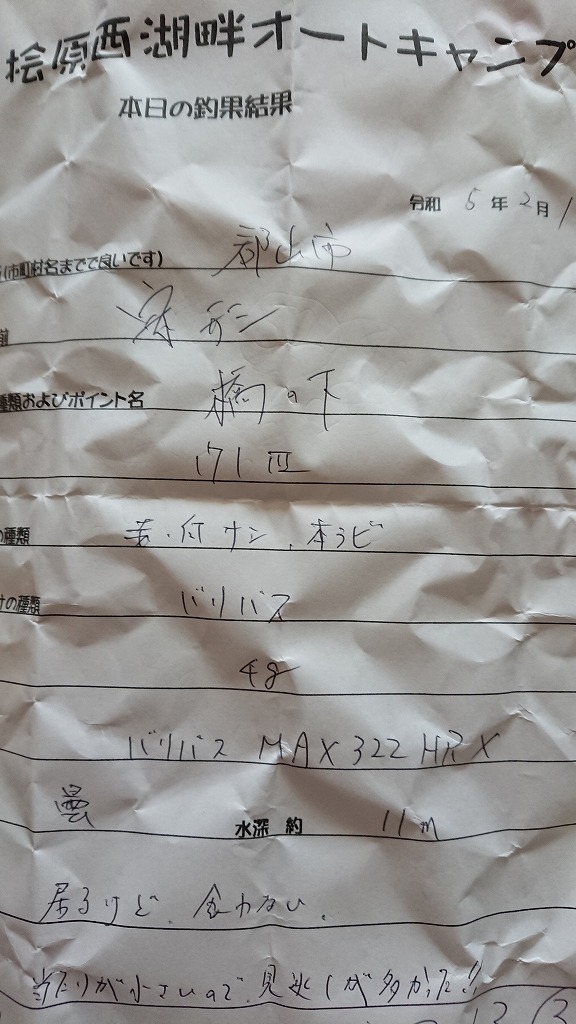 桧原西湖畔オートキャンプ
本日の釣果結果
令和 5 年 2 月 1
(市町村名までで良いです) 郡山市
種類およびポイント名 橋の下
171匹
の種類 付サシ、本ラビ
の種類 バリバス
4g
バリバス MAX 322 HRX
曇 水深 約 11m
居るけど、食わない、
当たりが小さいので、見逃しが多かった!!